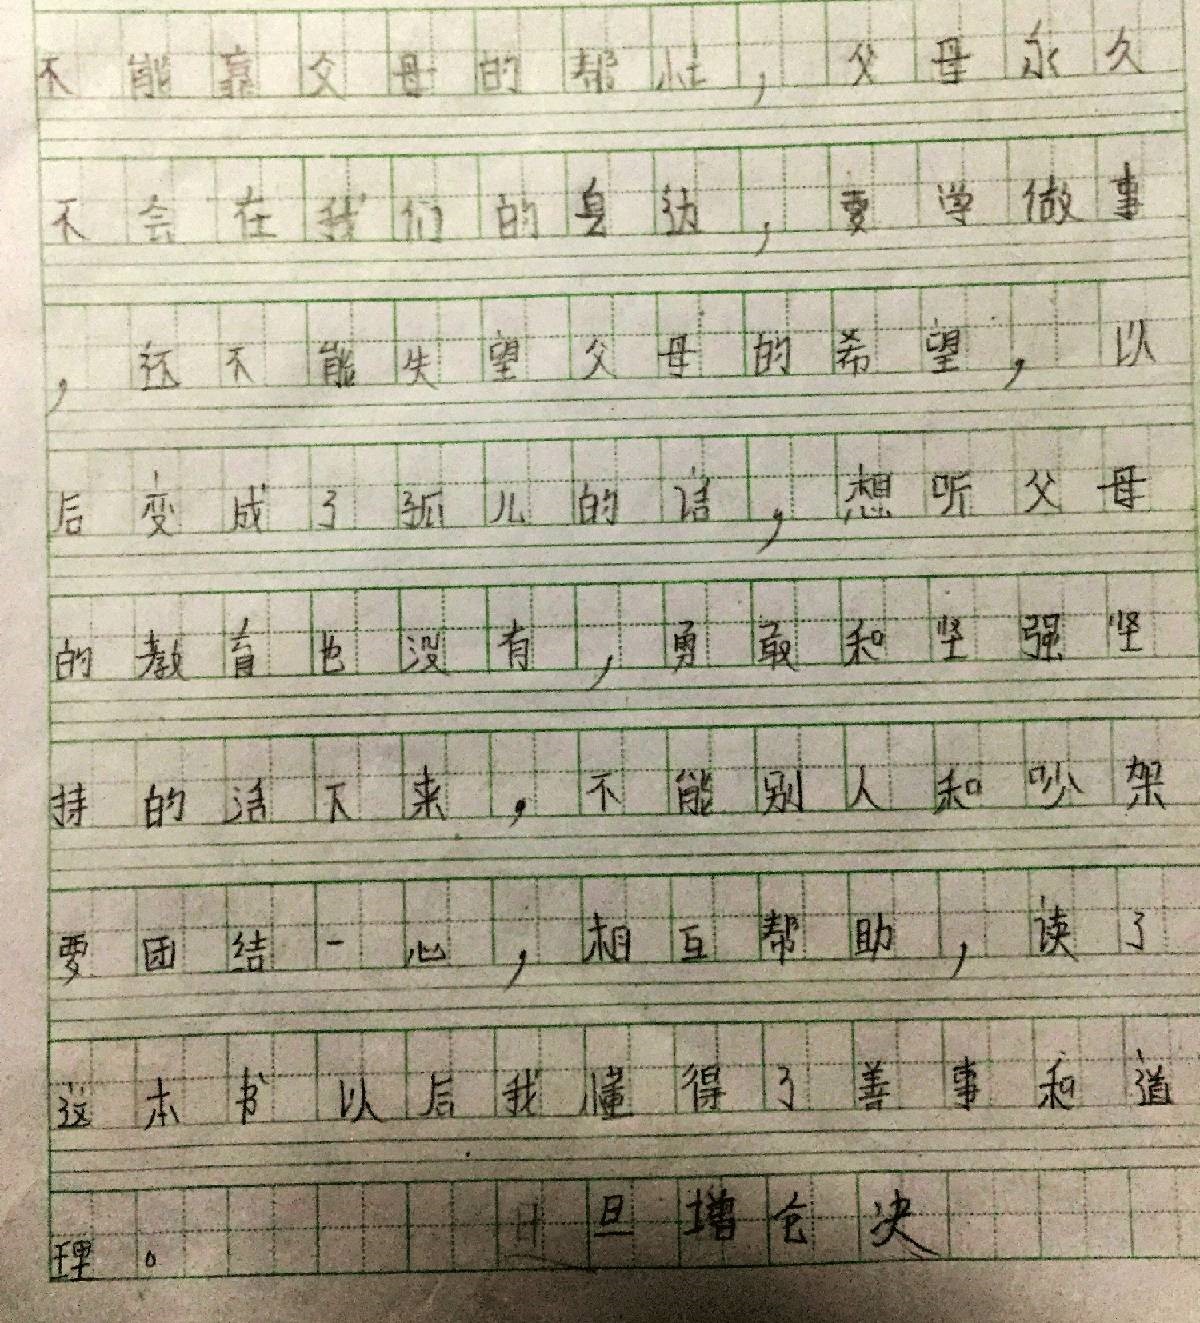 不能靠父母的帮忙，父母永久
不会在我们的身边，要学做事
，还不能失望父母的希望，以
后变成了孤儿的话，想听父母
的教育也没有，勇敢和坚强坚
持的活下来，不能别人和吵架
要团结一心，相互帮助，读了
这本书以后我懂得了善事和道
理。旦增仓决